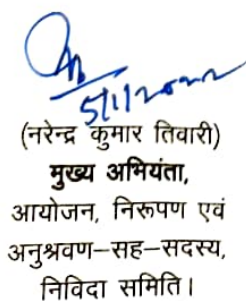 5/11/2022
(नरेन्द्र कुमार तिवारी)
मुख्य अभियंता,
आयोजन, निरूपण एवं
अनुश्रवण–सह–सदस्य,
निविदा समिति।